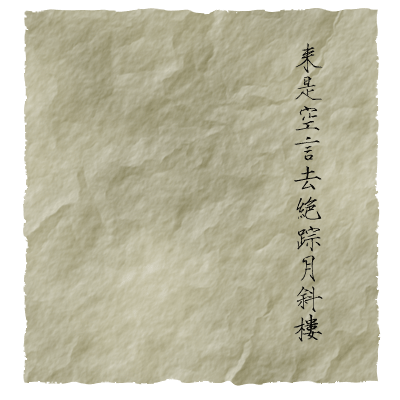 来是空言去絶踪月斜樓